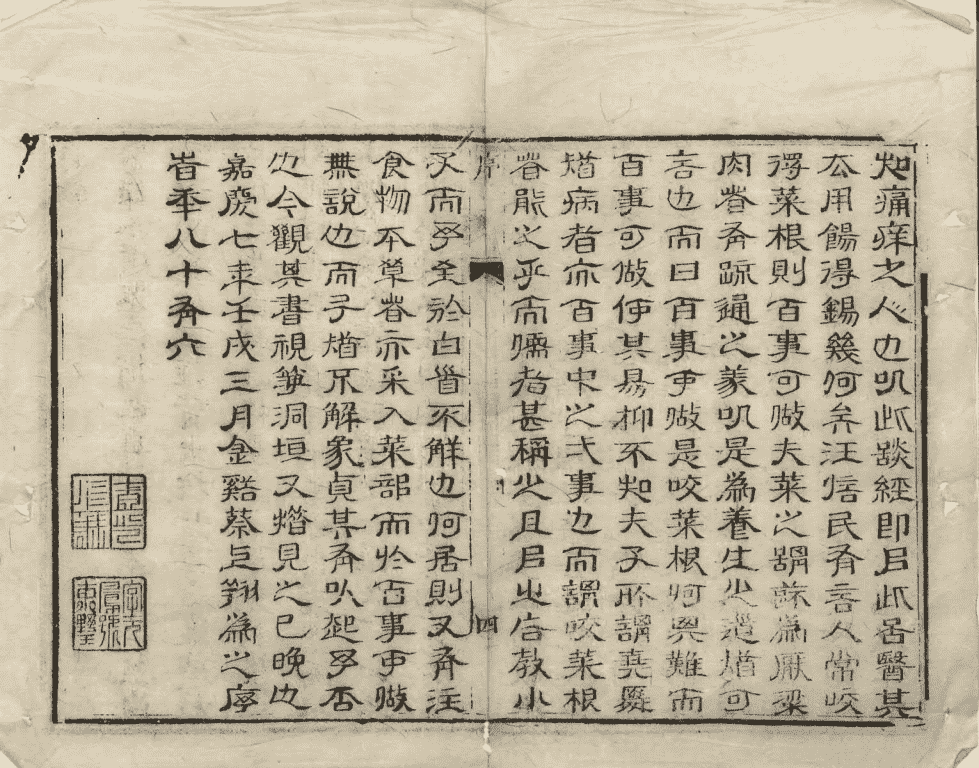 知痛痒之人也以此談經即以此居醫其
公用餳得錫幾何矣汪信民有言人常咬
得菜根則百事可做夫菜之謂蔬為厭粱
肉者有疏通之義以是為養生之道猶可
言也而曰百事可做是咬菜根何與難而
百事可做何其易抑不知夫子所謂異
猶病者亦百事中之弌事也而謂咬菜根
者能之乎而儒者甚稱之且以之啓教小
序
四
子而至於白首不解也何居則又有注
食物本草者亦采入菜部而於百事可做
無說也而子猶不解象貞其有以起予否
也今觀其書視箏洞垣又熸見之已晚也
嘉慶七年壬戌三月金谿蔡上翔為之序
旹年八十有六